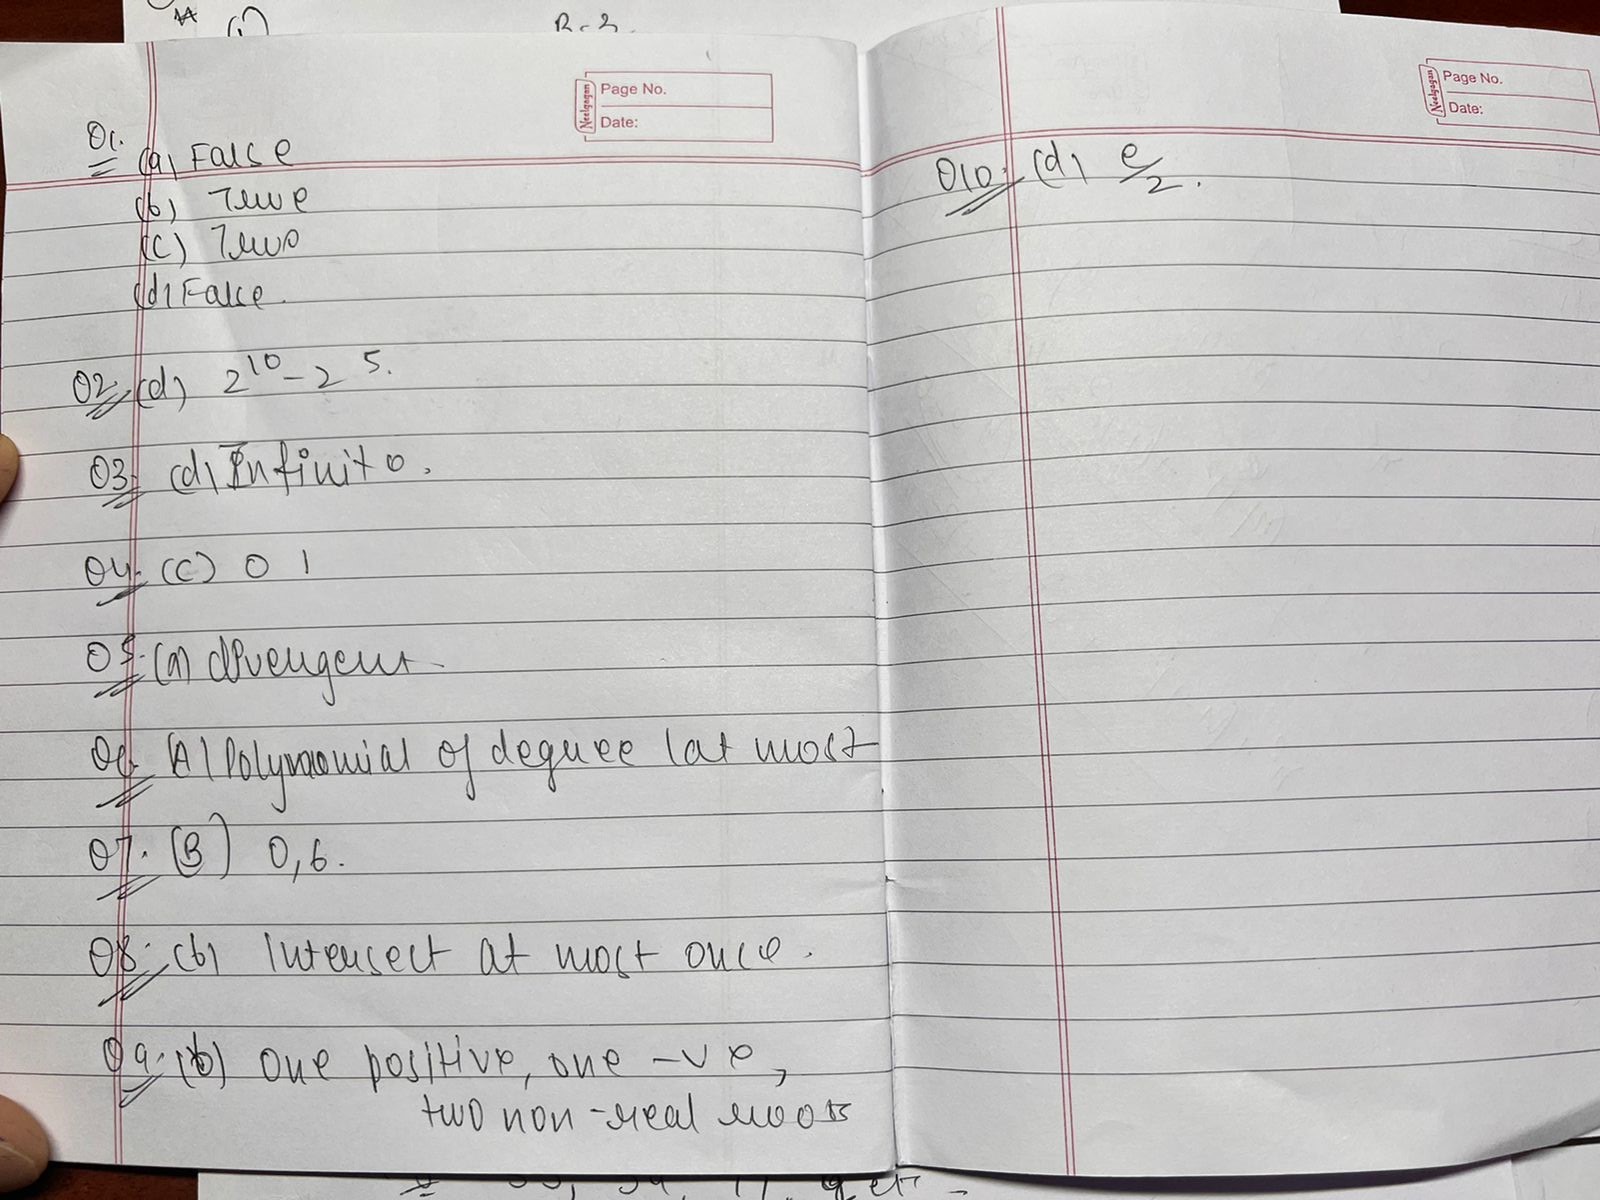 B-3.
(i)
Neelgagan
Page No.
Date:
Q1. (a) False
(b) True
(c) True
(d) False.
Q2. (d) 2^10 - 2^5.
Q3. (d) Infinite.
Q4. (c) 0 1
Q5. (a) divergent.
Q6. (A) Polynomial of degree 1 at most
Q7. (B) 0,6.
Q8. (b) Intersect at most once.
Q9. (b) one positive, one -ve,
two non-real roots
Neelgagan
Page No.
Date:
Q10. (d) e/2.